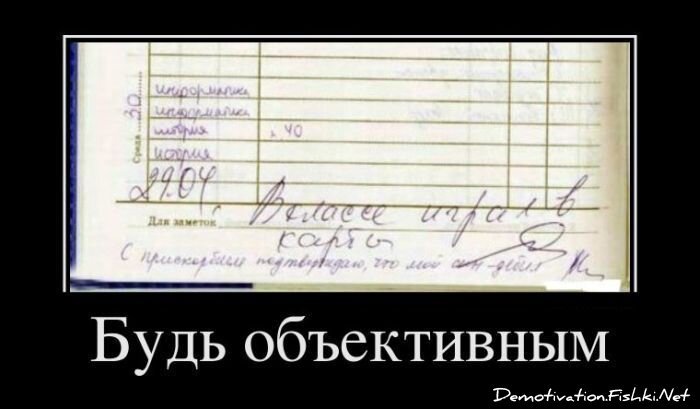 Среда 30
информатика
информатика
история § 40
история
29.04
В классе играл в
Для заметок
карты
С прискорбием подтверждаю, что мой сын - дебил
Будь объективным
Demotivation.Fishki.Net